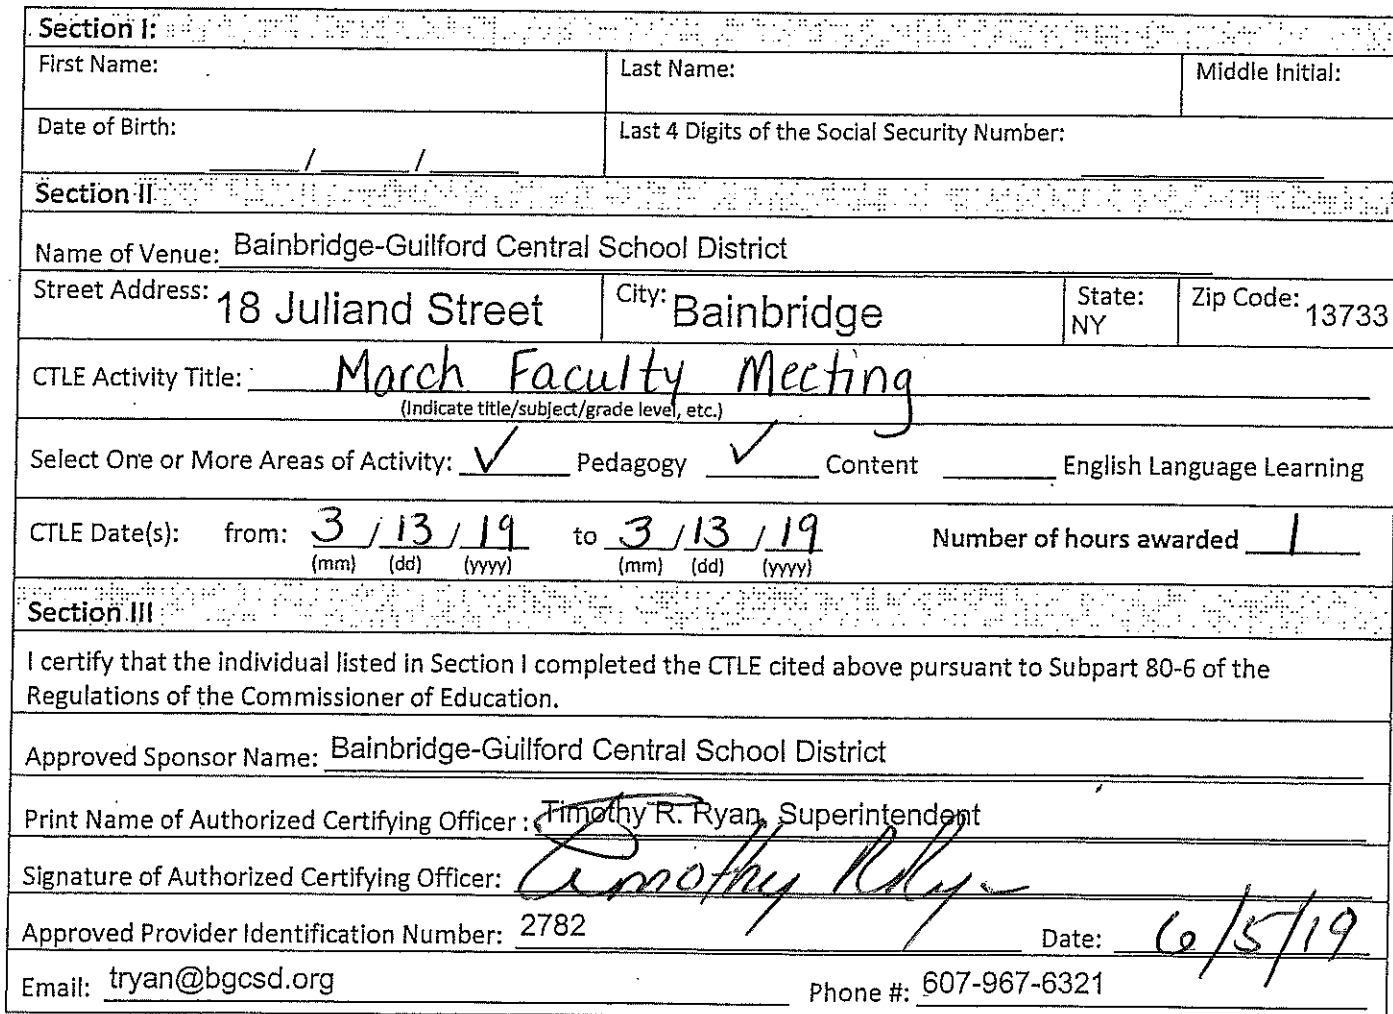 Section I:
First Name: Last Name: Middle Initial:
Date of Birth: Last 4 Digits of the Social Security Number:
____/____/____ ____
Section II
Name of Venue: Bainbridge-Guilford Central School District
Street Address: 18 Juliand Street City: Bainbridge State: NY Zip Code: 13733
CTLE Activity Title: March Faculty Meeting
(Indicate title/subject/grade level, etc.)
Select One or More Areas of Activity: ✓ Pedagogy ✓ Content ____ English Language Learning
CTLE Date(s): from: 3/13/19 to 3/13/19 Number of hours awarded 1
(mm) (dd) (yyyy) (mm) (dd) (yyyy)
Section III
I certify that the individual listed in Section I completed the CTLE cited above pursuant to Subpart 80-6 of the
Regulations of the Commissioner of Education.
Approved Sponsor Name: Bainbridge-Guilford Central School District
Print Name of Authorized Certifying Officer : Timothy R. Ryan, Superintendent
Signature of Authorized Certifying Officer: Timothy R Rya
Approved Provider Identification Number: 2782 Date: 6/5/19
Email: tryan@bgcsd.org Phone #: 607-967-6321